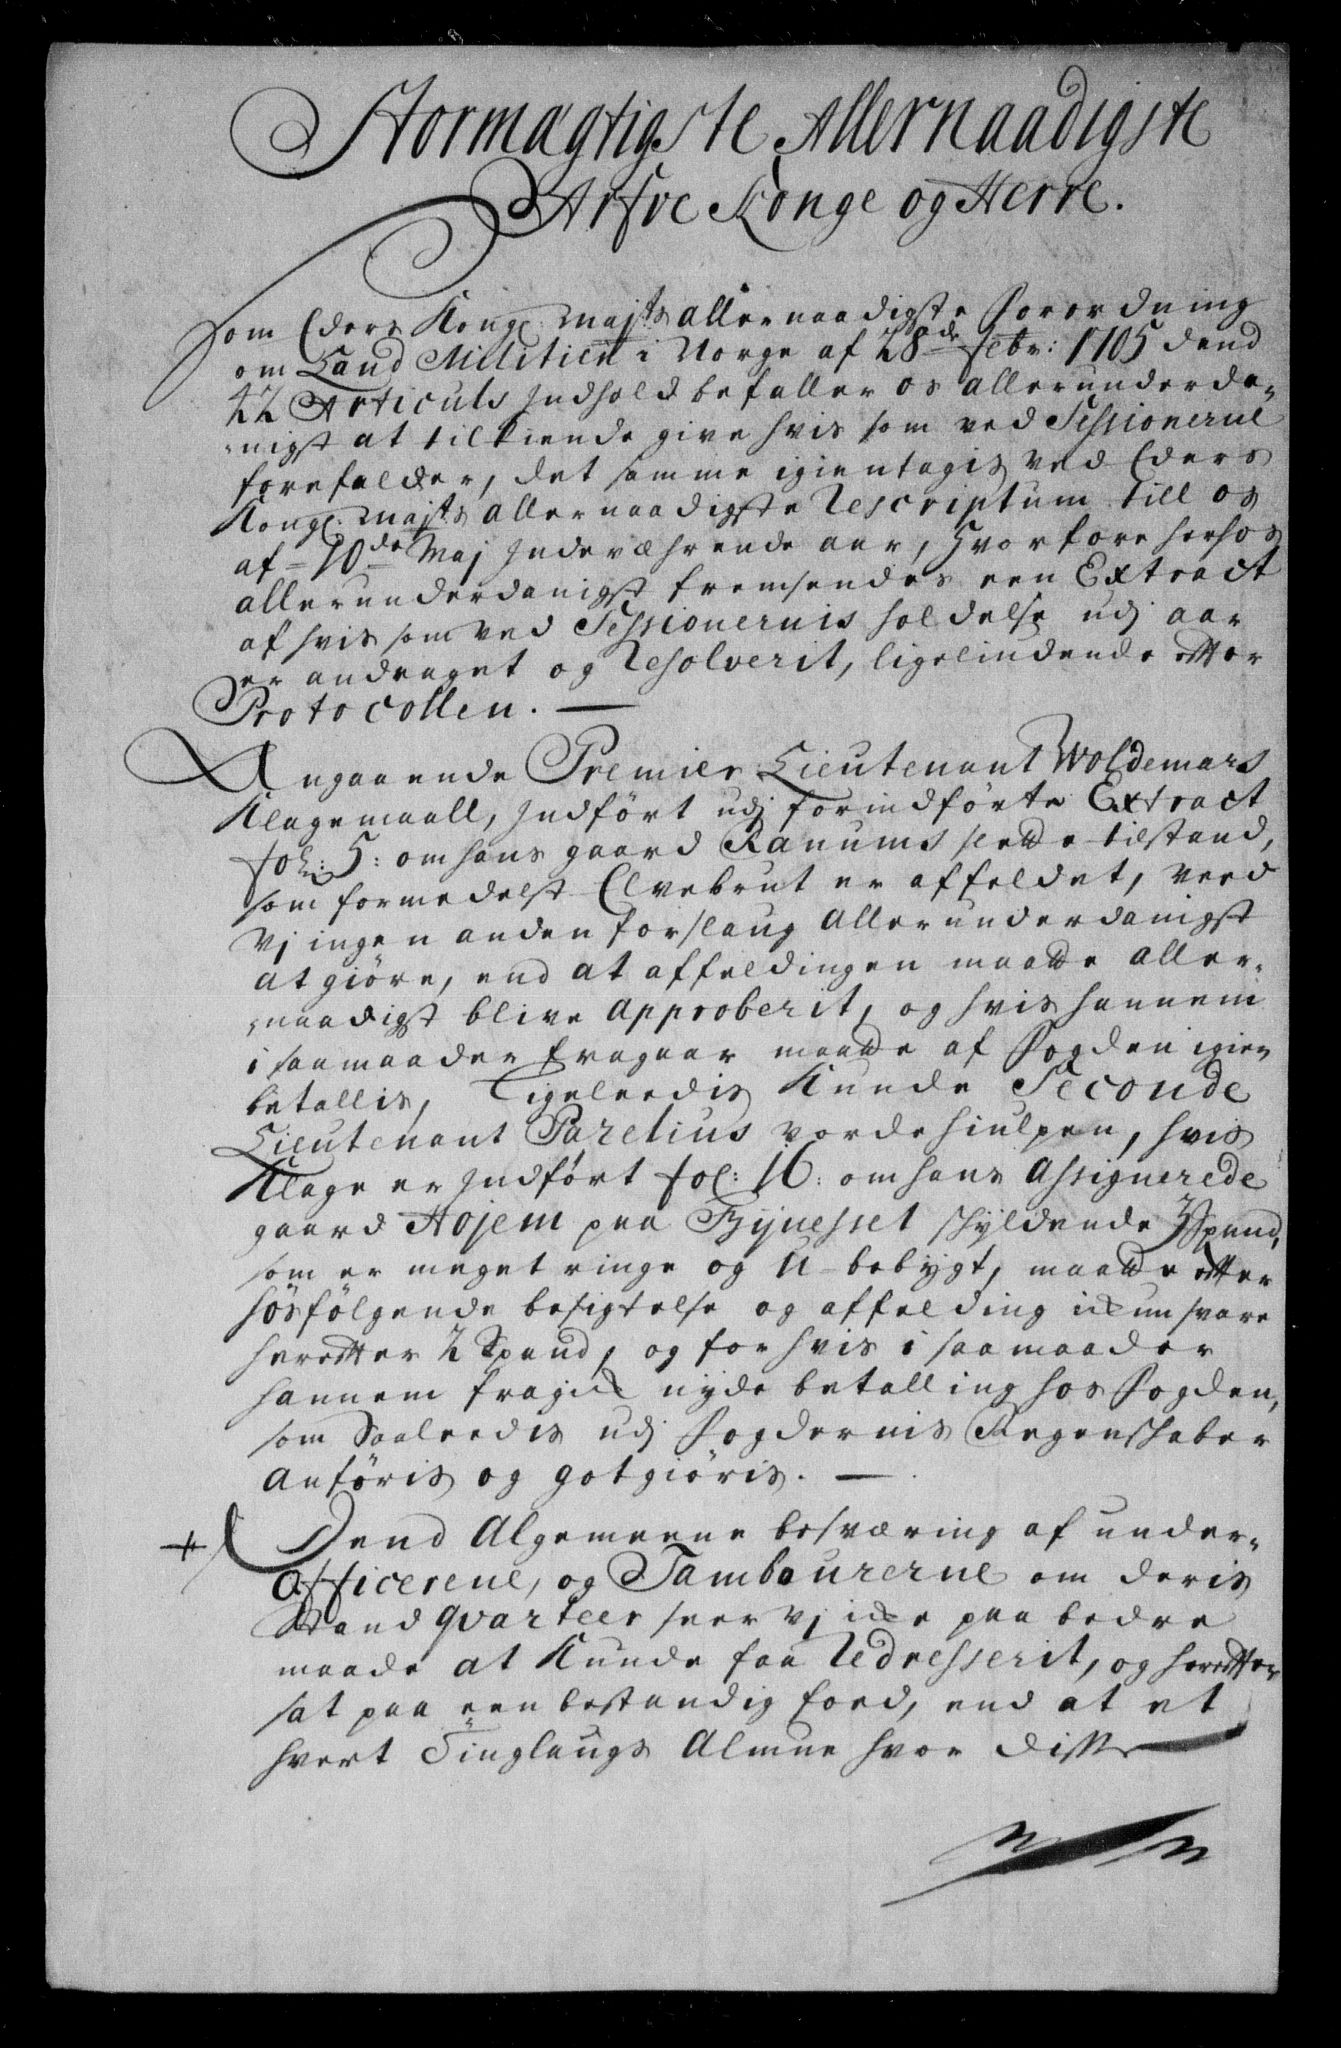 Stormægtigste Allernaadigste
Arfve Konge og Herre.
Som Eders Kongl: Majts allernaadigste Forordning
om Land Militien i Norge af 28de Febr: 1705 dend
22 Articuls Indhold befaller os allerunderda-
nigst at tilkiende give hvis som ved Sessionerne
forefalder, det samme igientagis ved Eders
Kongl. Majts allernaadigste Rescriptum till os
af 10de Maj Indeværende aar, Hvorfore herhos
allerunderdanigst fremsendes een Extract
af hvis som ved Sessionernis holdelse udj aar
er andraget og Resolverit, ligelindende efter
Protocollen. —
Angaaende Premier Lieutenant Woldemars
Klagemaall, Indført udj forindførte Extract
fol: 5: om hans gaard Ranums slette tilstand,
som formedelst Elvebrut er affeldet, veed
Vj ingen anden forslaug Allerunderdanigst
at giøre, end at affeldingen maatte aller-
naadigst blive Approberit, og hvis hannem
i saamaader fragaar maatte af Fogden igien
betallis, Ligeleedis Kunde Seconde
Lieutenant Parelius vorde hiulpen, hvis
Klage er Indført fol: 16: om hans Assignerede
gaard Hojem paa Bynesset skyldende 3 Spand,
som er meget ringe og U-bebygt, maatte efter
hosfølgende besigtelse og affelding ickun svare
herefter 2 Spand, og for hvis i saamaader
hannem fragick nyde betalling hos Fogden,
som Saaleedis udj Fogdernis Regenskaber
Anføris og gotgiøris. —
Dend Algemeene besværing af under-
officerene, og Tambourerne om deris
Stand qvarteer seer Vj icke paa bedre
maade at Kunde faa Redresserit, og herefter
sat paa een bestandig foed, end at et
hvert Tinglaugs Almue hvor disse